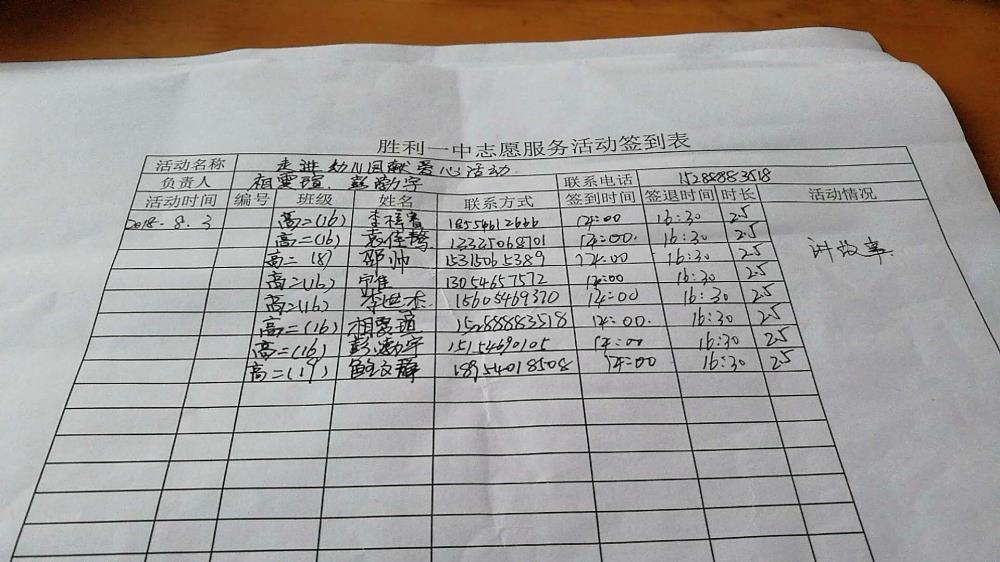 胜利一中志愿服务活动签到表
活动名称 走进幼儿园献爱心活动
负责人 相雯瑄 彭渤宇 联系电话 15288883518
活动时间 编号 班级 姓名 联系方式 签到时间 签退时间 时长 活动情况
2018.8.3 高二(16) 18554612666 14:00 16:30 2.5
高二(16) 14:00. 16:30 2.5 讲故事
高二(8) 邵帅 15315065389 14:00 16:30 2.5
高二(16) 13054657572 14:00 16:30 2.5
高二(16) 李世杰 15605469370 14:00 16:30 2.5
高二(16) 相雯瑄 15288883518 14:00. 16:30 2.5
高二(16) 彭渤宇 15154690105 14:00 16:30 2.5
高二(19) 18954018508 14:00 16:30 2.5